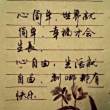 心简单，世界就
简单，幸福才会
生长；
心自由，生活就
自由，到哪都有
快乐。